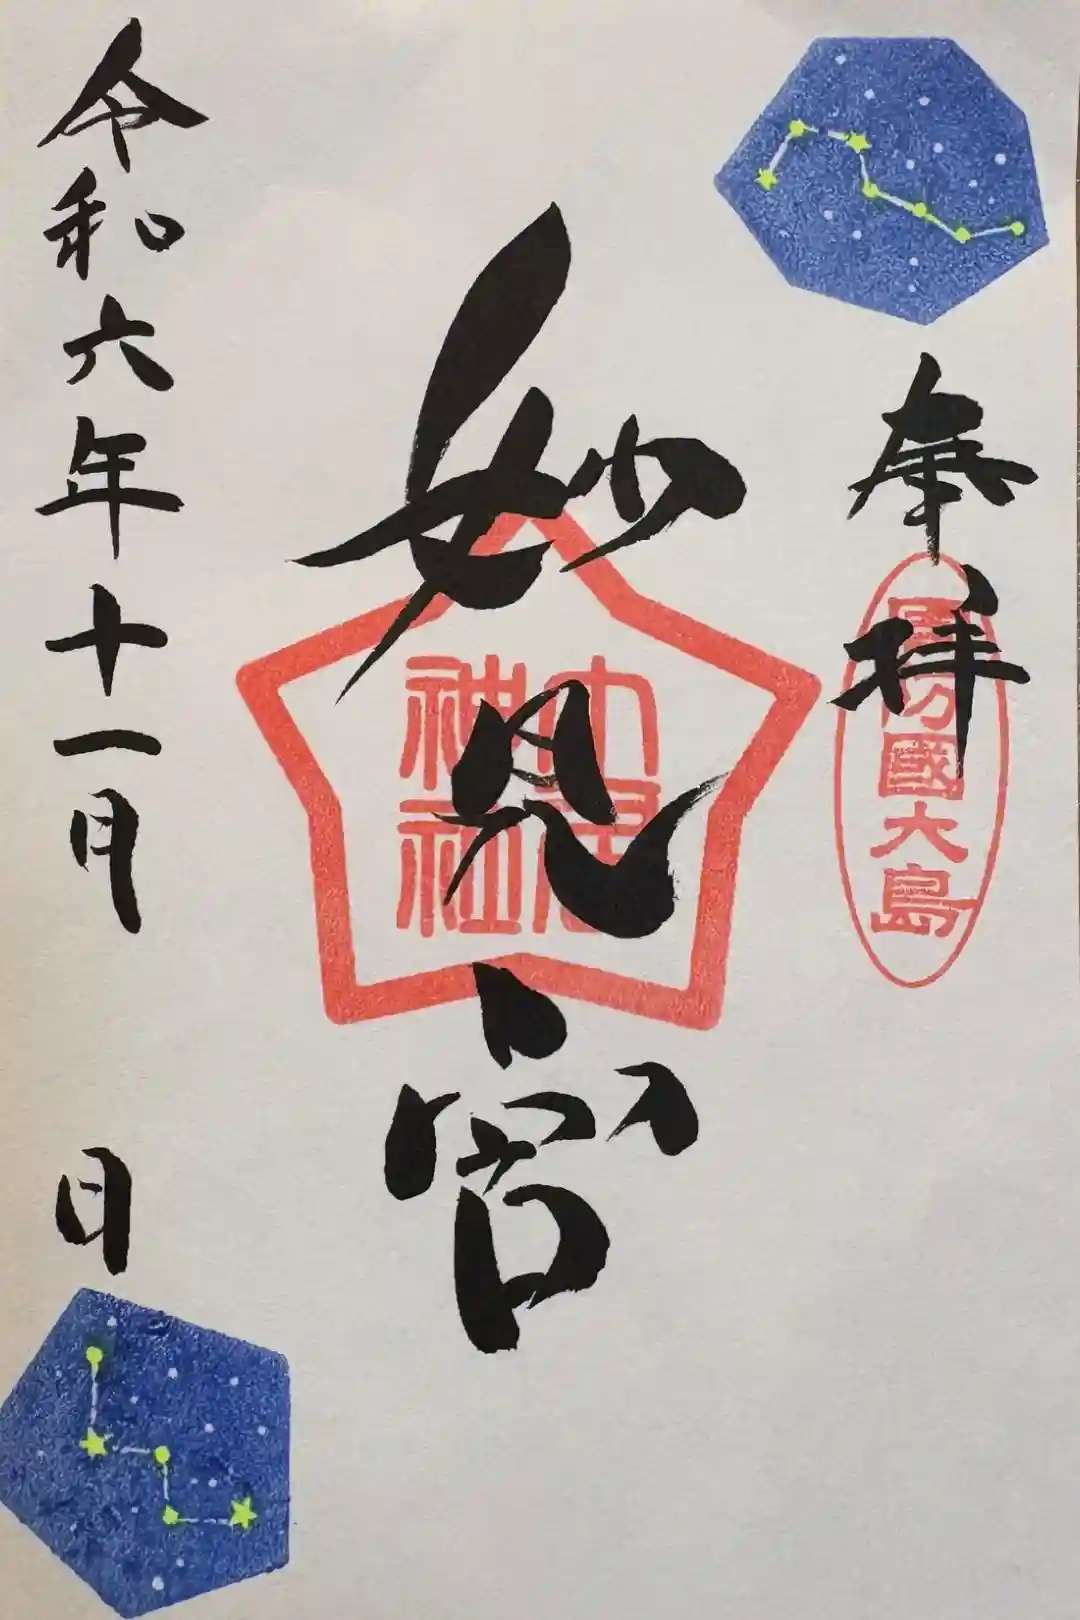 奉拝
周防國大島
妙見宮
神社
令和六年十一月 日